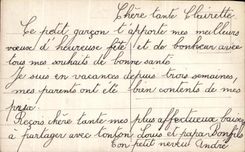 Chère tante Clairette
Ce petit garçon t'apporte mes meilleurs
vœux d'heureuse fête et de bonheur avec
tous mes souhaits de bonne santé
Je suis en vacances depuis trois semaines,
mes parents ont été bien contents de mes
prix.
Reçois chère tante mes plus affectueux baisers
à partager avec tonton Louis et papa Bonfils
Ton petit neveu André